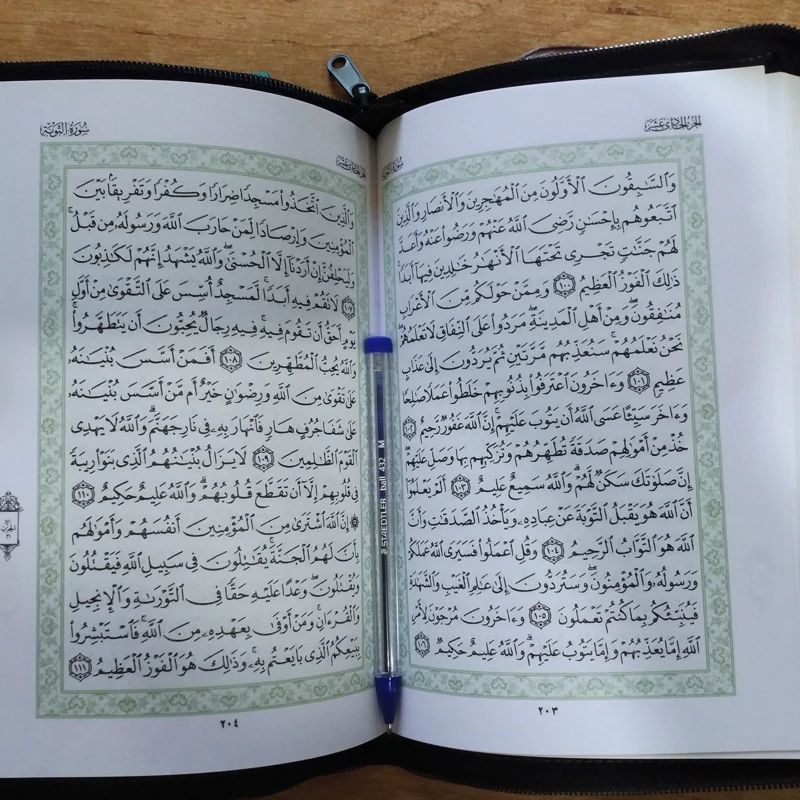 الجزء الحادي عشر
سورة التوبة
وَٱلسَّٰبِقُونَ ٱلْأَوَّلُونَ مِنَ ٱلْمُهَٰجِرِينَ وَٱلْأَنصَارِ وَٱلَّذِينَ
ٱتَّبَعُوهُم بِإِحْسَٰنٍ رَّضِىَ ٱللَّهُ عَنْهُمْ وَرَضُوا۟ عَنْهُ وَأَعَدَّ
لَهُمْ جَنَّٰتٍ تَجْرِى تَحْتَهَا ٱلْأَنْهَٰرُ خَٰلِدِينَ فِيهَآ أَبَدًا
ذَٰلِكَ ٱلْفَوْزُ ٱلْعَظِيمُ ١٠٠ وَمِمَّنْ حَوْلَكُم مِّنَ ٱلْأَعْرَابِ
مُنَٰفِقُونَ وَمِنْ أَهْلِ ٱلْمَدِينَةِ مَرَدُوا۟ عَلَى ٱلنِّفَاقِ لَا تَعْلَمُهُمْ
نَحْنُ نَعْلَمُهُمْ سَنُعَذِّبُهُم مَّرَّتَيْنِ ثُمَّ يُرَدُّونَ إِلَىٰ عَذَابٍ
عَظِيمٍ ١٠١ وَءَاخَرُونَ ٱعْتَرَفُوا۟ بِذُنُوبِهِمْ خَلَطُوا۟ عَمَلًا صَٰلِحًا
وَءَاخَرَ سَيِّئًا عَسَى ٱللَّهُ أَن يَتُوبَ عَلَيْهِمْ إِنَّ ٱللَّهَ غَفُورٌ رَّحِيمٌ ١٠٢
خُذْ مِنْ أَمْوَٰلِهِمْ صَدَقَةً تُطَهِّرُهُمْ وَتُزَكِّيهِم بِهَا وَصَلِّ عَلَيْهِمْ
إِنَّ صَلَوٰتَكَ سَكَنٌ لَّهُمْ وَٱللَّهُ سَمِيعٌ عَلِيمٌ ١٠٣ أَلَمْ يَعْلَمُوٓا۟
أَنَّ ٱللَّهَ هُوَ يَقْبَلُ ٱلتَّوْبَةَ عَنْ عِبَادِهِۦ وَيَأْخُذُ ٱلصَّدَقَٰتِ وَأَنَّ
ٱللَّهَ هُوَ ٱلتَّوَّابُ ٱلرَّحِيمُ ١٠٤ وَقُلِ ٱعْمَلُوا۟ فَسَيَرَى ٱللَّهُ عَمَلَكُمْ
وَرَسُولُهُۥ وَٱلْمُؤْمِنُونَ وَسَتُرَدُّونَ إِلَىٰ عَٰلِمِ ٱلْغَيْبِ وَٱلشَّهَٰدَةِ
فَيُنَبِّئُكُم بِمَا كُنتُمْ تَعْمَلُونَ ١٠٥ وَءَاخَرُونَ مُرْجَوْنَ لِأَمْرِ
ٱللَّهِ إِمَّا يُعَذِّبُهُمْ وَإِمَّا يَتُوبُ عَلَيْهِمْ وَٱللَّهُ عَلِيمٌ حَكِيمٌ ١٠٦
٢٠٣
سورة التوبة
الجزء الحادي عشر
وَٱلَّذِينَ ٱتَّخَذُوا۟ مَسْجِدًا ضِرَارًا وَكُفْرًا وَتَفْرِيقًۢا بَيْنَ
ٱلْمُؤْمِنِينَ وَإِرْصَادًا لِّمَنْ حَارَبَ ٱللَّهَ وَرَسُولَهُۥ مِن قَبْلُ
وَلَيَحْلِفُنَّ إِنْ أَرَدْنَآ إِلَّا ٱلْحُسْنَىٰ وَٱللَّهُ يَشْهَدُ إِنَّهُمْ لَكَٰذِبُونَ
١٠٧ لَا تَقُمْ فِيهِ أَبَدًا لَّمَسْجِدٌ أُسِّسَ عَلَى ٱلتَّقْوَىٰ مِنْ أَوَّلِ
يَوْمٍ أَحَقُّ أَن تَقُومَ فِيهِ فِيهِ رِجَالٌ يُحِبُّونَ أَن يَتَطَهَّرُوا۟
وَٱللَّهُ يُحِبُّ ٱلْمُطَّهِّرِينَ ١٠٨ أَفَمَنْ أَسَّسَ بُنْيَٰنَهُۥ
عَلَىٰ تَقْوَىٰ مِنَ ٱللَّهِ وَرِضْوَٰنٍ خَيْرٌ أَم مَّنْ أَسَّسَ بُنْيَٰنَهُۥ
عَلَىٰ شَفَا جُرُفٍ هَارٍ فَٱنْهَارَ بِهِۦ فِى نَارِ جَهَنَّمَ وَٱللَّهُ لَا يَهْدِى
ٱلْقَوْمَ ٱلظَّٰلِمِينَ ١٠٩ لَا يَزَالُ بُنْيَٰنُهُمُ ٱلَّذِى بَنَوْا۟ رِيبَةً
فِى قُلُوبِهِمْ إِلَّآ أَن تَقَطَّعَ قُلُوبُهُمْ وَٱللَّهُ عَلِيمٌ حَكِيمٌ ١١٠
۞ إِنَّ ٱللَّهَ ٱشْتَرَىٰ مِنَ ٱلْمُؤْمِنِينَ أَنفُسَهُمْ وَأَمْوَٰلَهُم
بِأَنَّ لَهُمُ ٱلْجَنَّةَ يُقَٰتِلُونَ فِى سَبِيلِ ٱللَّهِ فَيَقْتُلُونَ
وَيُقْتَلُونَ وَعْدًا عَلَيْهِ حَقًّا فِى ٱلتَّوْرَىٰةِ وَٱلْإِنجِيلِ
وَٱلْقُرْءَانِ وَمَنْ أَوْفَىٰ بِعَهْدِهِۦ مِنَ ٱللَّهِ فَٱسْتَبْشِرُوا۟
بِبَيْعِكُمُ ٱلَّذِى بَايَعْتُم بِهِۦ وَذَٰلِكَ هُوَ ٱلْفَوْزُ ٱلْعَظِيمُ ١١١
٢٠٤
STAEDTLER ball 432 M